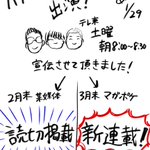 出演!
1/29
テレ東
土曜
朝8:00~8:30
宣伝させて頂きました!
2月末 集媒体
3月末 マガポケ
読切掲載
新連載!